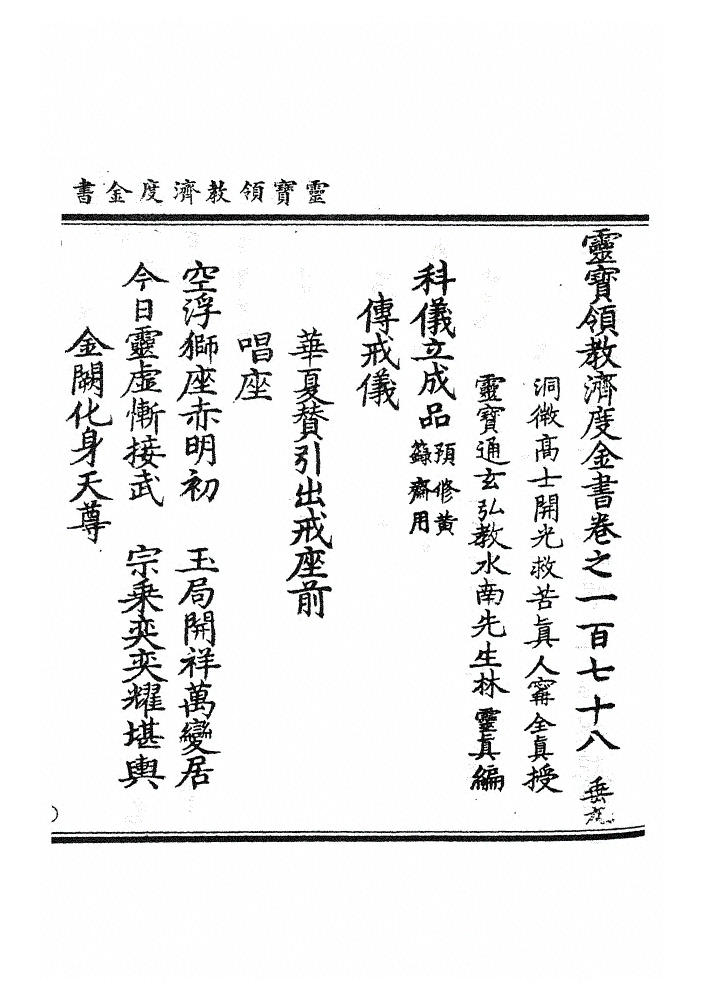 靈寶領教濟度金書
靈寶領教濟度金書卷之一百七十八 垂
洞微高士開光救苦眞人寗全眞授
靈寶通玄弘教水南先生林靈眞編
科儀立成品 預修黃籙齋用
傳戒儀
華夏賛引出戒座前
唱座
空浮獅座赤明初 玉局開祥萬變居
今日靈虛慚接武 宗乘奕奕耀堪輿
金闕化身天尊